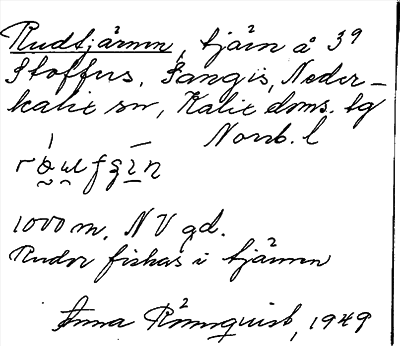 Rudtjärnen, tjärn å 39
Stoffers, Sangis, Neder-
kalix sn, Kalix doms. lg
Norrb. l
1000 m. NV gd.
Rudor fiskas i tjärnen
Anna Rönnquist, 1949